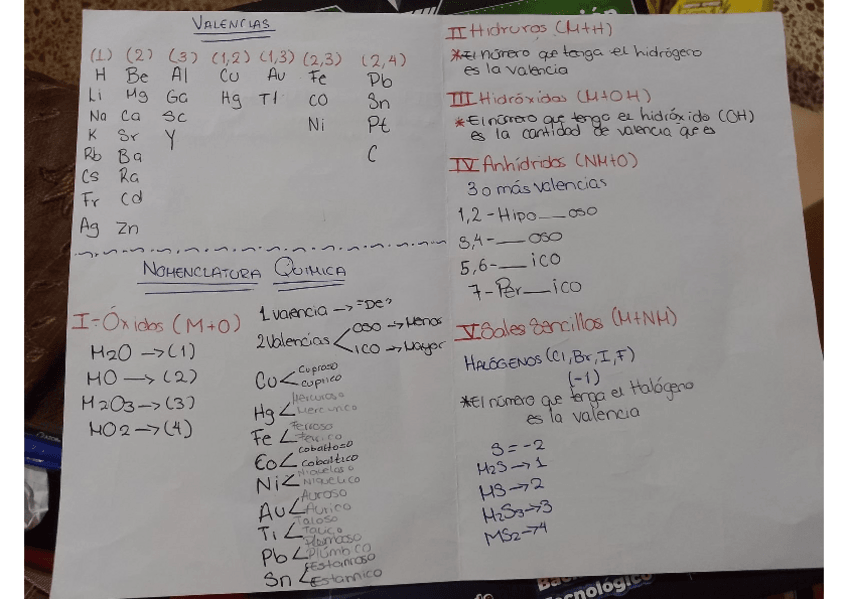 VALENCIAS
(1) (2) (3) (1,2) (1,3) (2,3) (2,4)
H Be Al Cu Au Fe Pb
Li Mg Ga Hg Tl CO Sn
Na Ca Sc Ni Pt
K Sr Y C
Rb Ba
Cs Ra
Fr Cd
Ag Zn
NOMENCLATURA QUIMICA
I-Óxidos (M+O)
M2O → (1)
MO → (2)
M2O3 → (3)
MO2 → (4)
1 valencia → "De"
2 Valencias < oso → Menor
ico → Mayor
Cu < Cuproso
cuprico
Hg < Mercuroso
Mercurico
Fe < Ferroso
Ferrico
Co < cobaltoso
cobaltico
Ni < Niqueloso
Niquelico
Au < Auroso
Aurico
Ti < Taloso
Talico
Pb < Plumboso
Plúmbico
Sn < Estannoso
Estannico
II Hidruros (M+H)
*El número que tenga el hidrógeno
es la valencia
III Hidróxidos (M+OH)
*El número que tenga el hidróxido (OH)
es la cantidad de valencia que es
IV Anhídridos (NM+O)
3 o más valencias
1,2-Hipo___oso
3,4-___oso
5,6-___ico
7-Per___ico
V Sales Sencillas (M+NM)
HALÓGENOS (Cl, Br, I, F)
(-1)
*El número que tenga el Halógeno
es la valencia
S = -2
M2S → 1
MS → 2
M2S3 → 3
MS2 → 4
Tecnológico